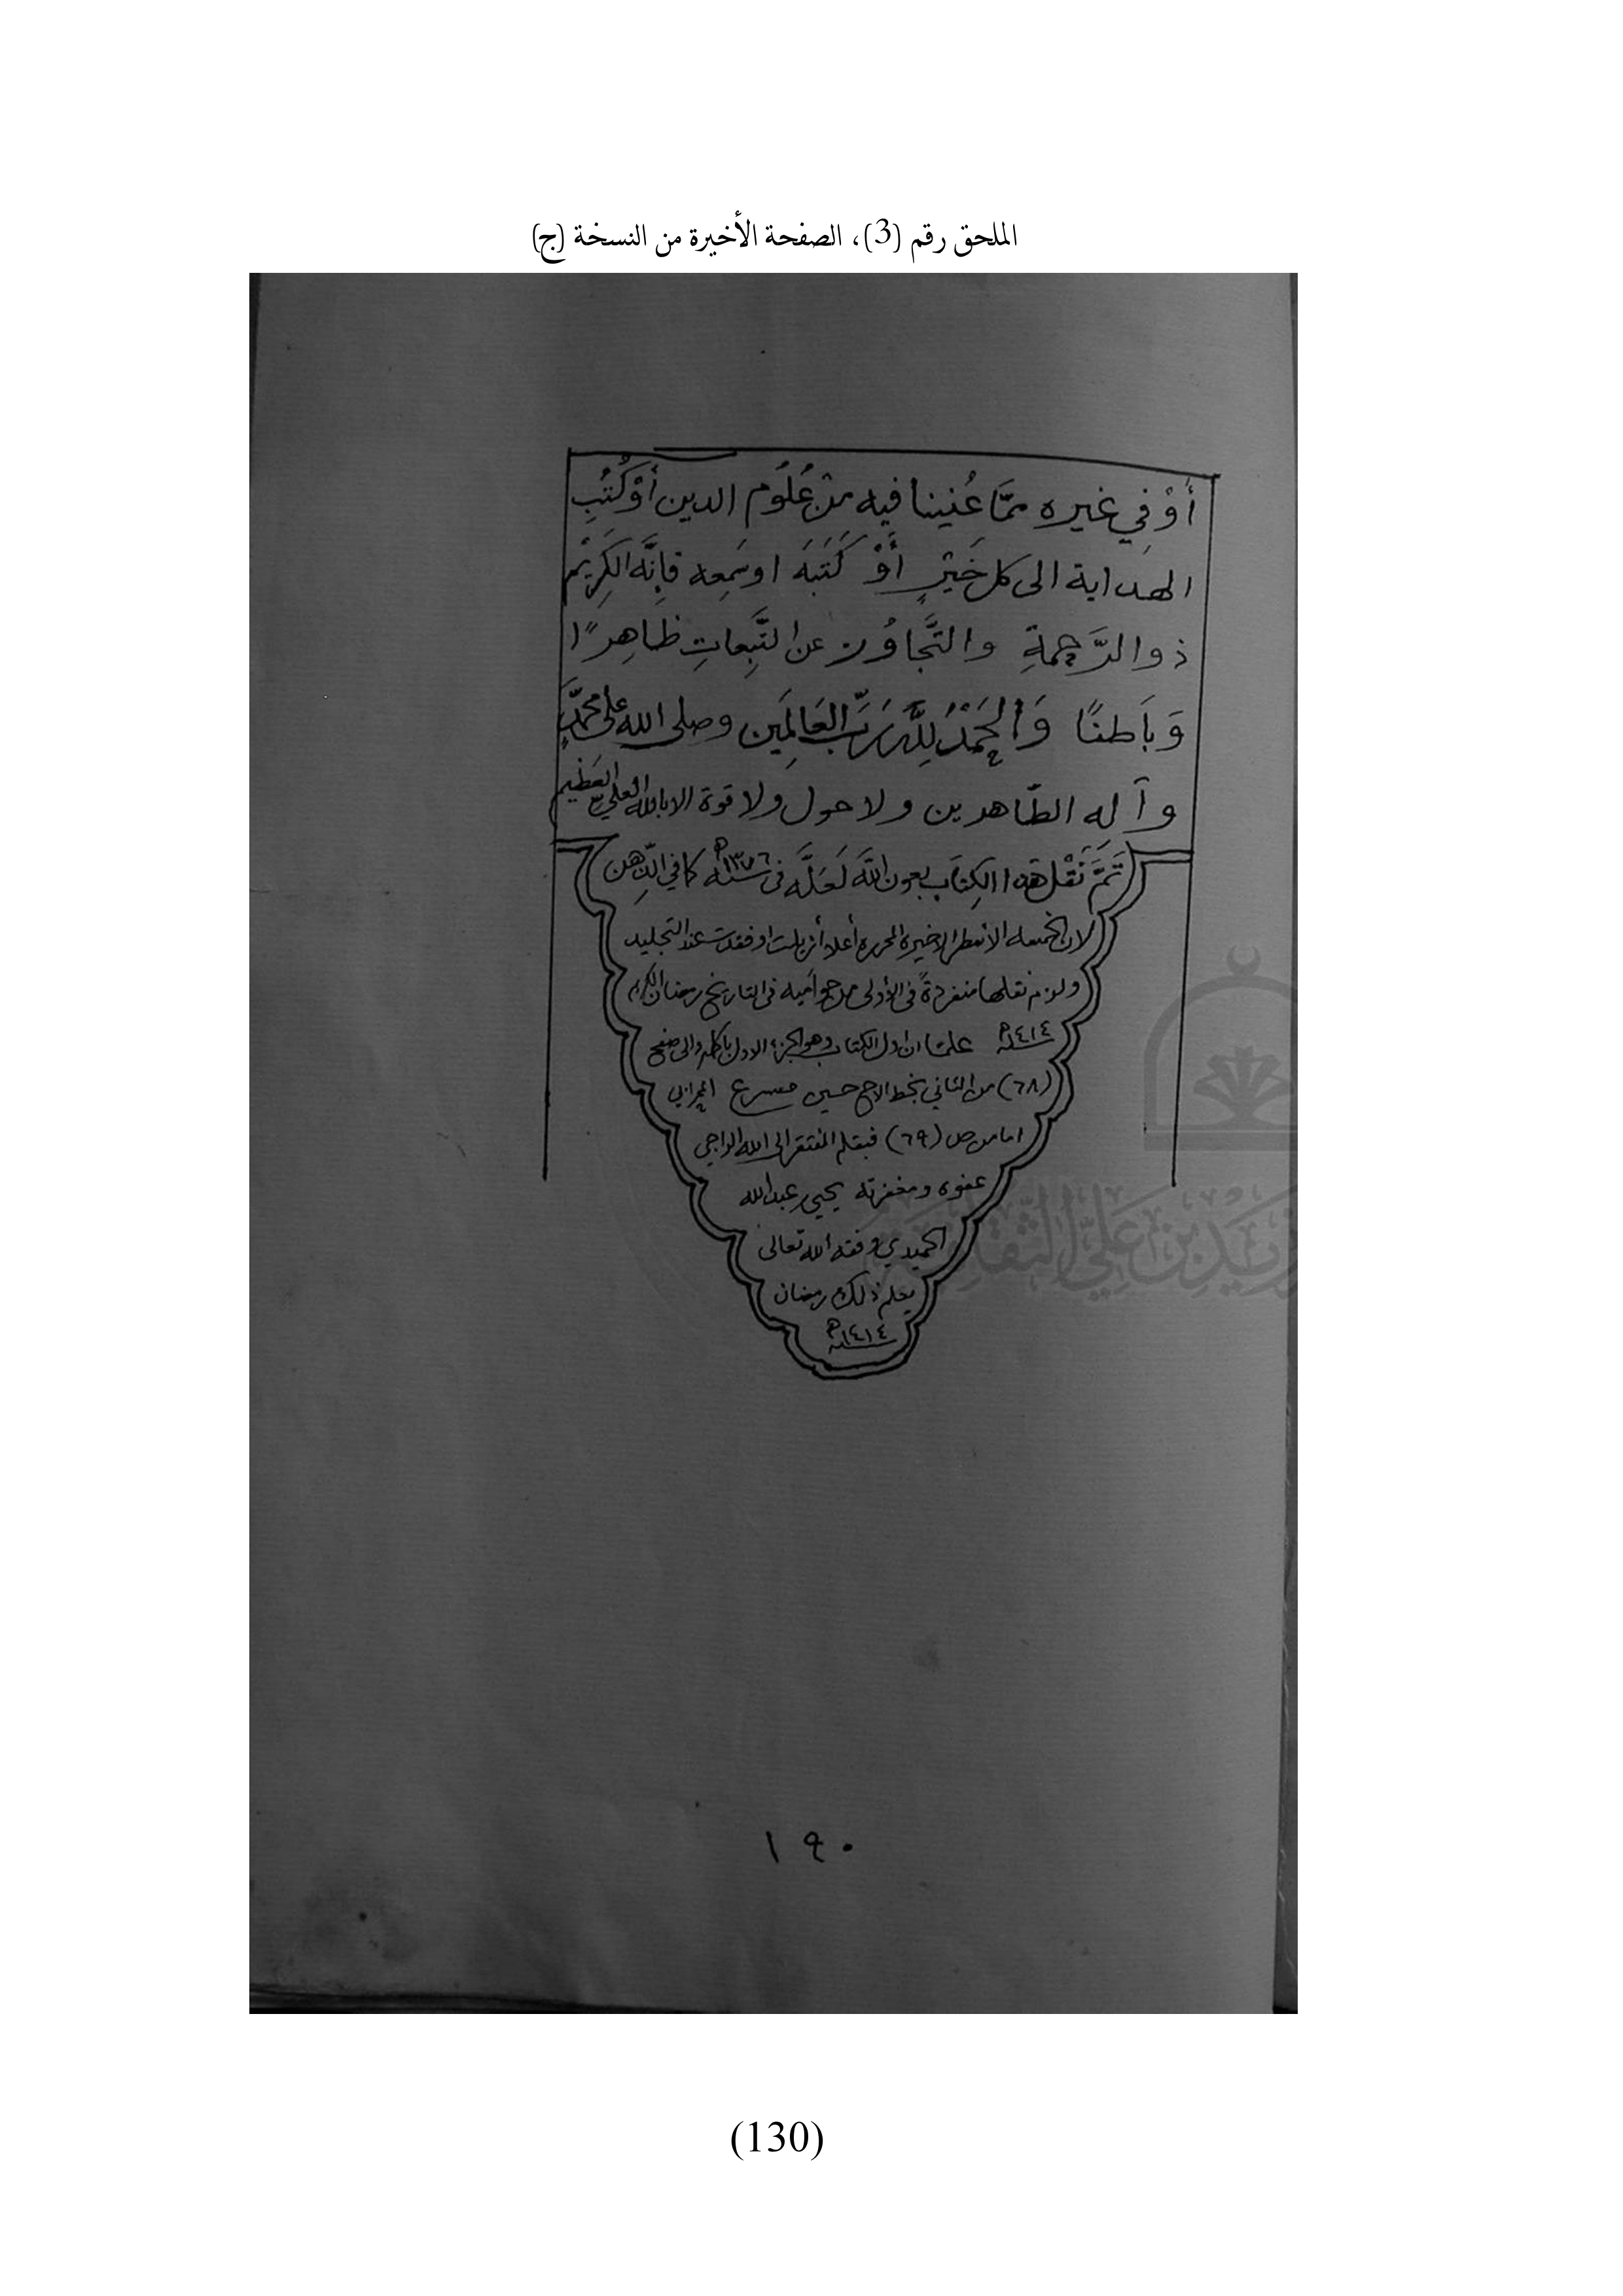 الملحق رقم (3)، الصفحة الأخيرة من النسخة (ج)
أَوْ فِي غيره ممَّا عُنينا فيه من عُلُوم الدين أوْ كُتُبِ
الهداية الى كل خَيْرٍ أَوْ كَتَبَهُ اوسَمِعه فَإِنَّه الكَرِيْم
ذو الرَّحمةِ والتَّجاوُز عن التَّبِعاتِ ظاهِرًا
وَبَاطنًا وَالحَمْدُ لِلَّهِ رَبِّ العَالمِين وصلى الله على محمَّدٍ
وآله الطّاهرين ولا حول ولا قوة الا بالله العلي العَظيم
تَمَّ نَقْل هذا الكِتَاب بعون اللَّه لَعَلَّه في سنة ١٣٧٦ﻫ كما في الذِّهن
لان الخمسه الاسطر الاخيره المحرره أعلا أزيلت او فقدت عند التجليد
ولزم نقلها منفردةً في الأولى في التاريخ رمضان الكريم
١٤١٤ﻫ علمًا ان اول الكتاب وهو الجزء الاول باكمله والى صفح
(٦٨) من الثاني بخط الاخ حسين مسرع
اما من ص (٦٩) فبقلم المفتقر الى الله الراجي
عفوه ومغفرته يحيى عبدالله
الحميدي وفقه الله تعالى
يعلم ذلك رمضان
١٤١٤ﻫ
١٩٠
زيد بن علي الثقافية
(130)